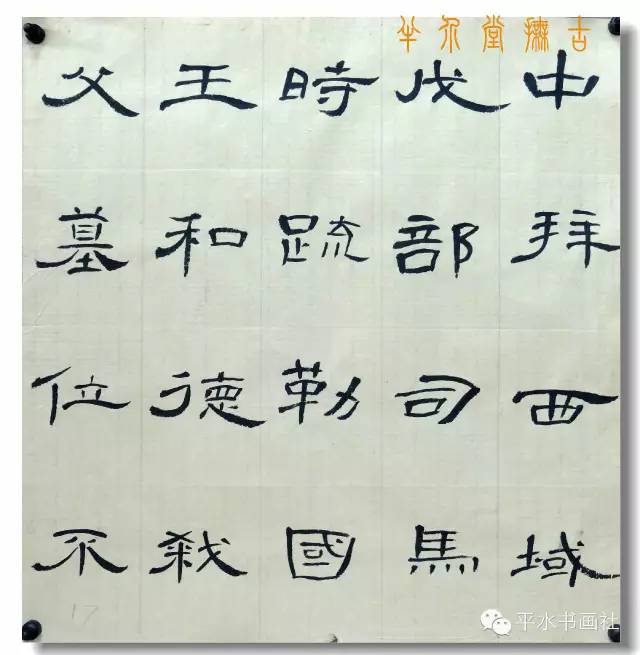 堂撫古
中拜西域
戊部司馬
時疏勒國
王和德弒
父篡位不
17
平水书画社